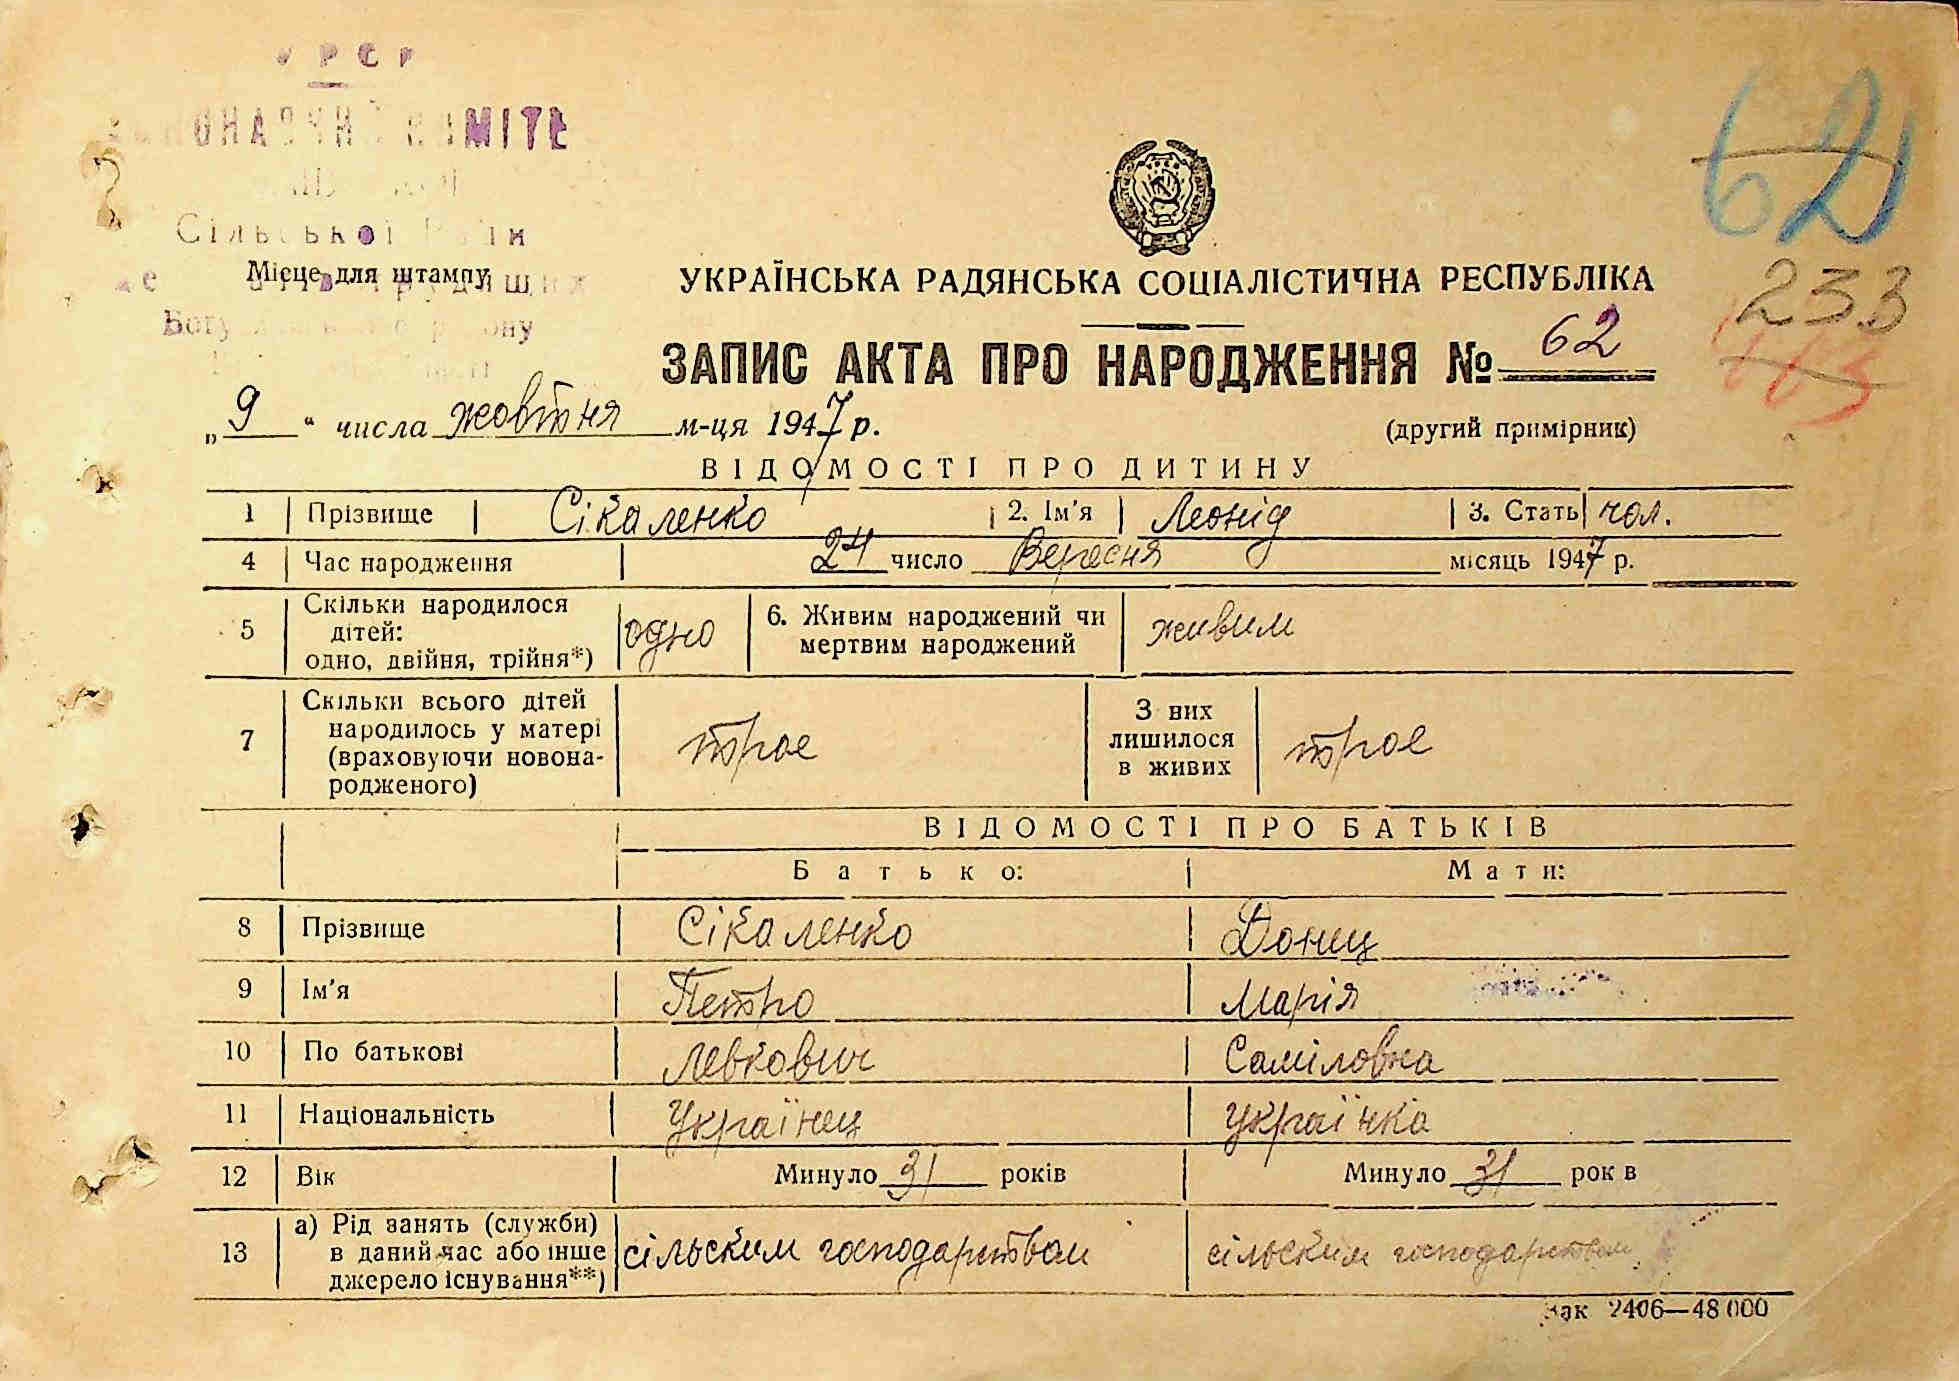 Сільської Ради
Місце для штампу
УКРАЇНСЬКА РАДЯНСЬКА СОЦІАЛІСТИЧНА РЕСПУБЛІКА
ЗАПИС АКТА ПРО НАРОДЖЕННЯ № 62
62
233
„ 9 “ числа жовтня м-ця 1947 р.
(другий примірник)
ВІДОМОСТІ ПРО ДИТИНУ
1 Прізвище Сікаленко 2. Ім'я Леонід 3. Стать чол.
4 Час народження 24 число Вересня місяць 1947 р.
5 Скільки народилося дітей: одно, двійня, трійня*) одно 6. Живим народжений чи мертвим народжений живим
7 Скільки всього дітей народилось у матері (враховуючи новонародженого) троє З них лишилося в живих троє
ВІДОМОСТІ ПРО БАТЬКІВ
Батько: Мати:
8 Прізвище Сікаленко Донец
9 Ім'я Петро Марія
10 По батькові Левкович Саміловна
11 Національність Українец Українка
12 Вік Минуло 31 років Минуло 31 рок в
13 а) Рід занять (служби) в даний час або інше джерело існування**) сільским господарством сільским господарством
Зак 2406—48 000